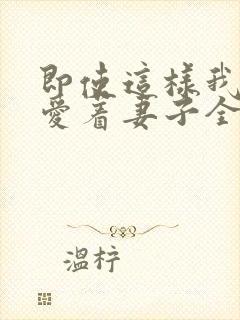 即使這樣我
愛着妻子全
溫梓